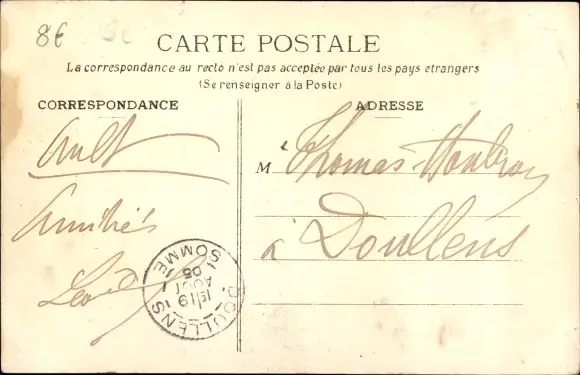 8€
CARTE POSTALE
La correspondance au recto n'est pas acceptée par tous les pays etrangers
(Se renseigner à la Poste)
CORRESPONDANCE
ADRESSE
Ault
Amitiés
M Thomas
à Doullens
DOULLENS
SOMME
19
AOUT
05